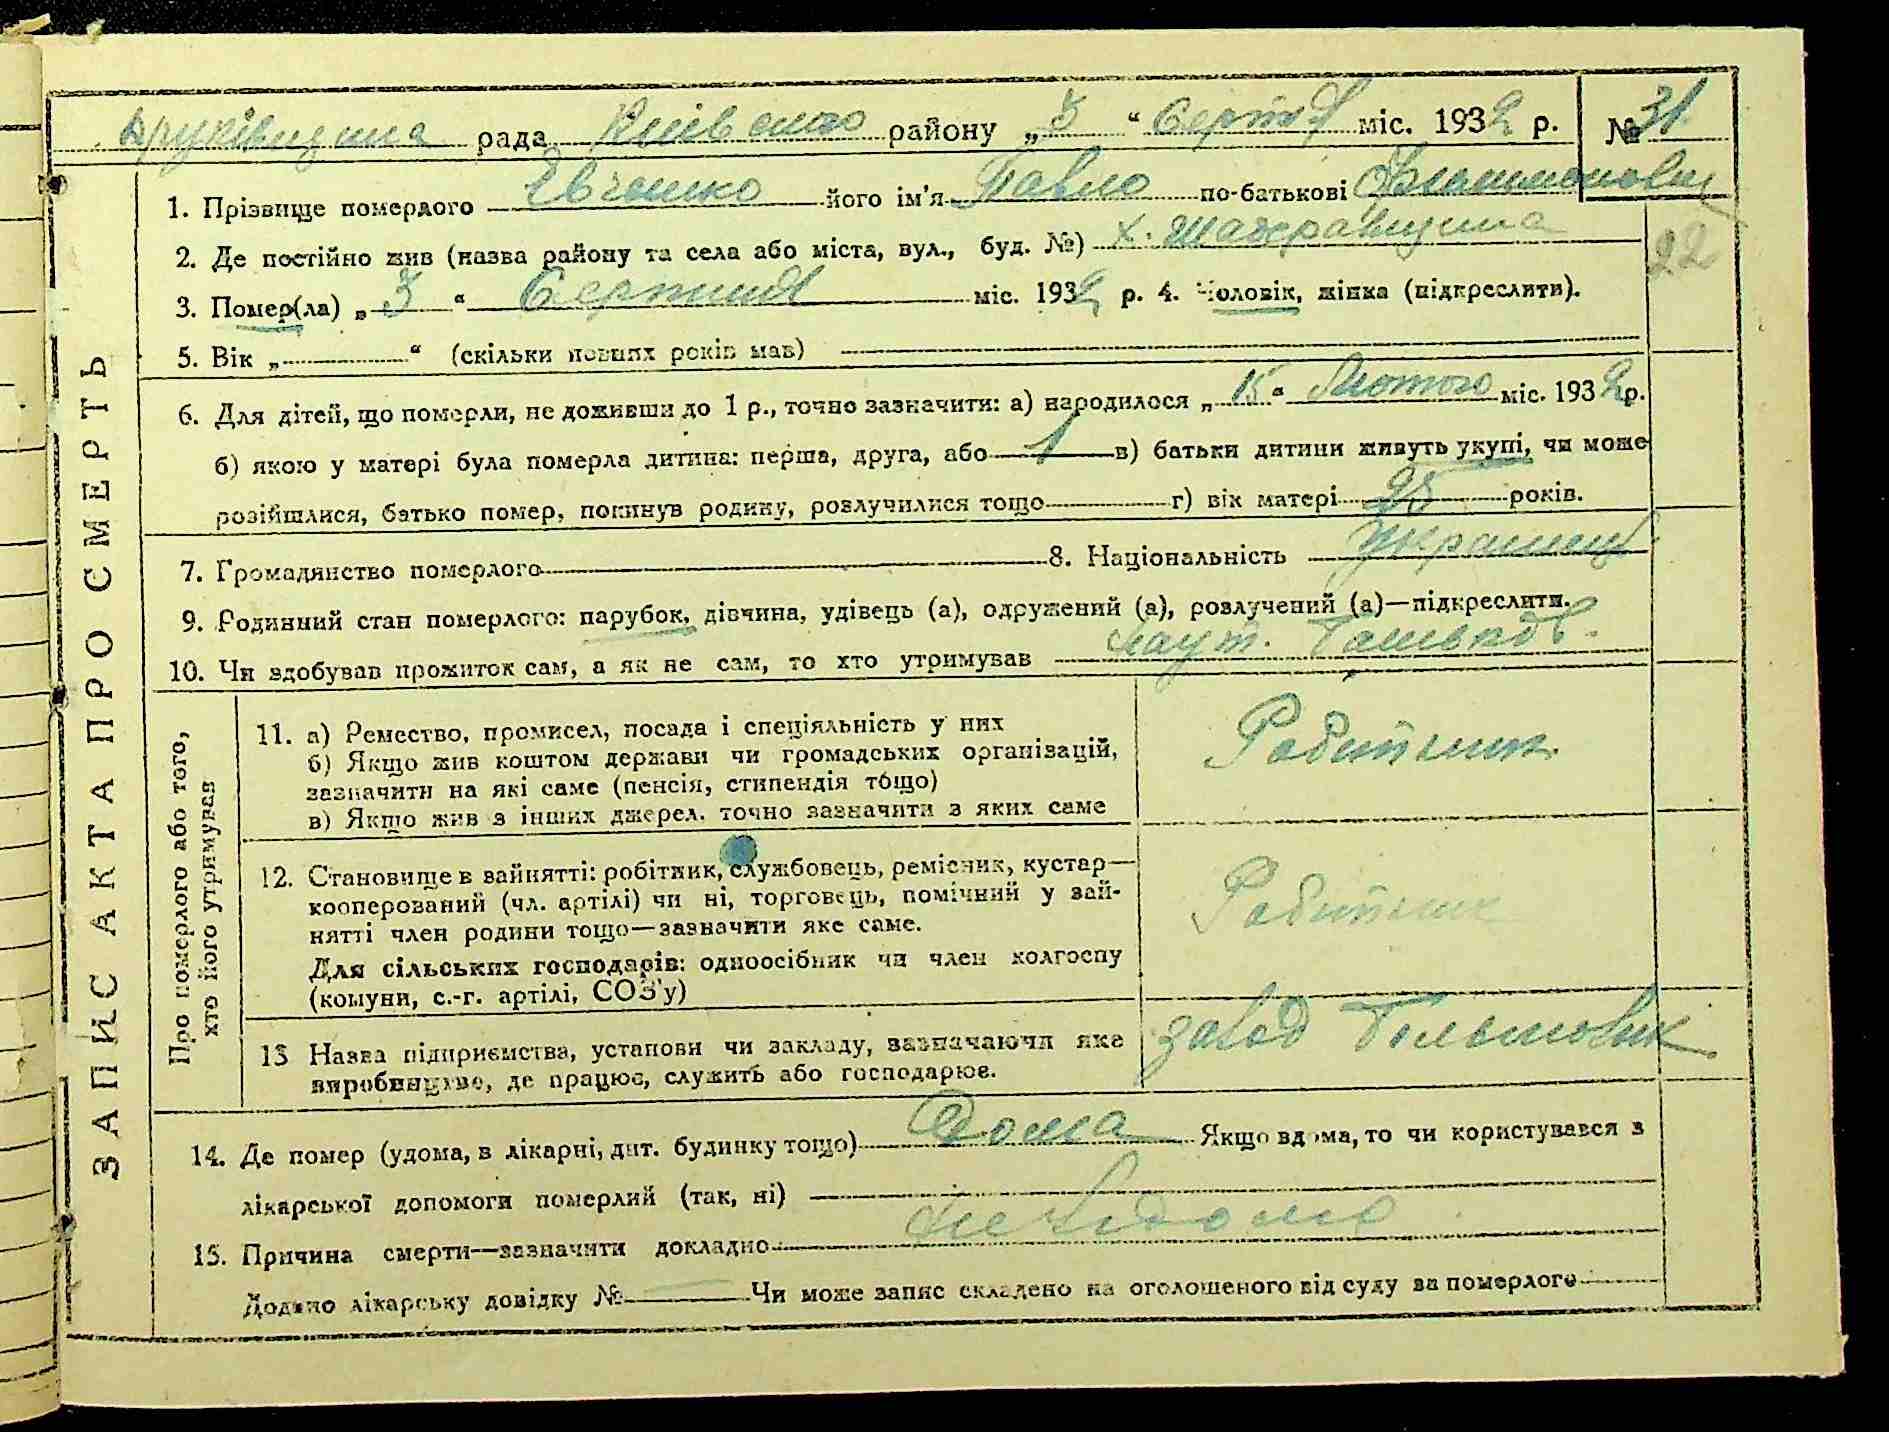 Друківщина рада Київського району „3“ Серпня міс. 1932 р. № 31
1. Прізвище померлого Євченко його ім'я Павло по-батькові Филимонович
2. Де постійно жив (назва району та села або міста, вул., буд. №) х. Шатравщина
22
3. Помер(ла) „3“ Серпня міс. 1932 р. 4. Чоловік, жінка (підкреслити).
5. Вік „ “ (скільки повних років мав)
6. Для дітей, що померли, не доживши до 1 р., точно зазначити: а) народилося „15“ Лютого міс. 1932 р.
б) якою у матері була померла дитина: перша, друга, або 1 в) батьки дитини живуть укупі, чи може
розійшлися, батько помер, покинув родину, розлучилися тощо г) вік матері 25 років.
7. Громадянство померлого 8. Національність Українець
9. Родинний стан померлого: парубок, дівчина, удівець (а), одружений (а), розлучений (а)—підкреслити.
10. Чи здобував прожиток сам, а як не сам, то хто утримував Батьків.
ЗАПИС АКТА ПРО СМЕРТЬ
Про померлого або того,
хто його утримував
11. а) Ремество, промисел, посада і спеціяльність у них
б) Якщо жив коштом держави чи громадських організацій,
зазначити на які саме (пенсія, стипендія тощо)
в) Якщо жив з інших джерел, точно зазначити з яких саме
Робітник
12. Становище в зайнятті: робітник, службовець, ремісник, кустар—
кооперований (чл. артілі) чи ні, торговець, помічний у зай-
нятті член родини тощо—зазначити яке саме.
Для сільських господарів: одноосібник чи член колгоспу
(комуни, с.-г. артілі, СОЗ'у)
Робітник
13 Назва підприємства, установи чи закладу, зазначаючи яке
виробництво, де працює, служить або господарює.
завод Большовик
14. Де помер (удома, в лікарні, дит. будинку тощо) Дома Якщо вдома, то чи користувався з
лікарської допомоги померлий (так, ні)
15. Причина смерти—зазначити докладно невідомо
Додано лікарську довідку № Чи може запис складено на оголошеного від суду за померлого